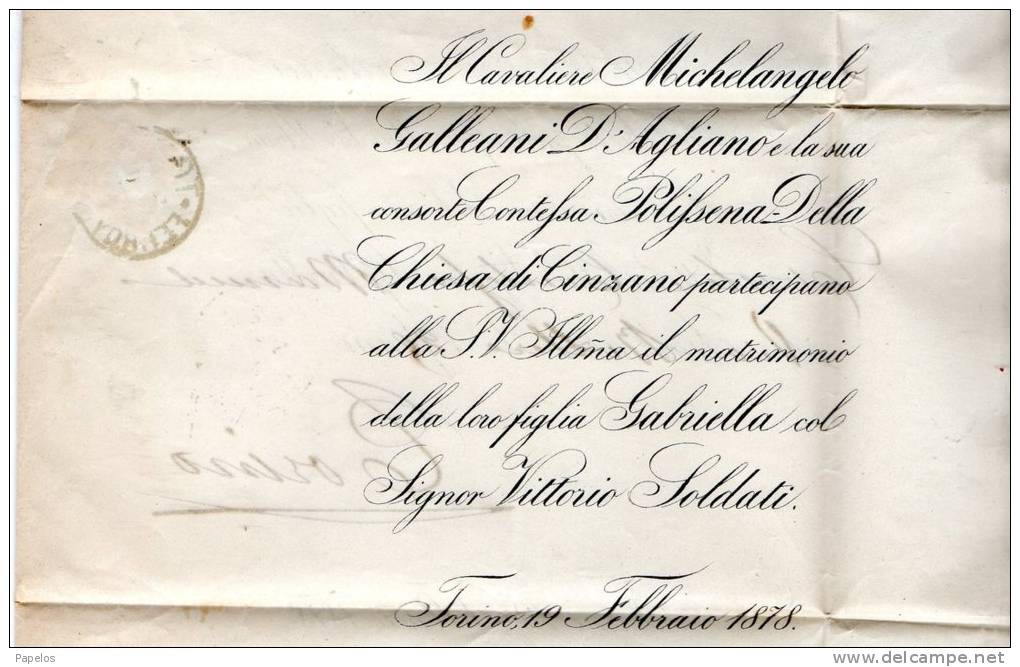 Il Cavaliere Michelangelo
Galleani D'Agliano e la sua
consorte Contessa Polissena Della
Chiesa di Cinzano partecipano
alla S.V. Illm̃a il matrimonio
della loro figlia Gabriella col
Signor Vittorio Soldati.
Torino, 19 Febbraio 1878.
Papelos
www.delcampe.net